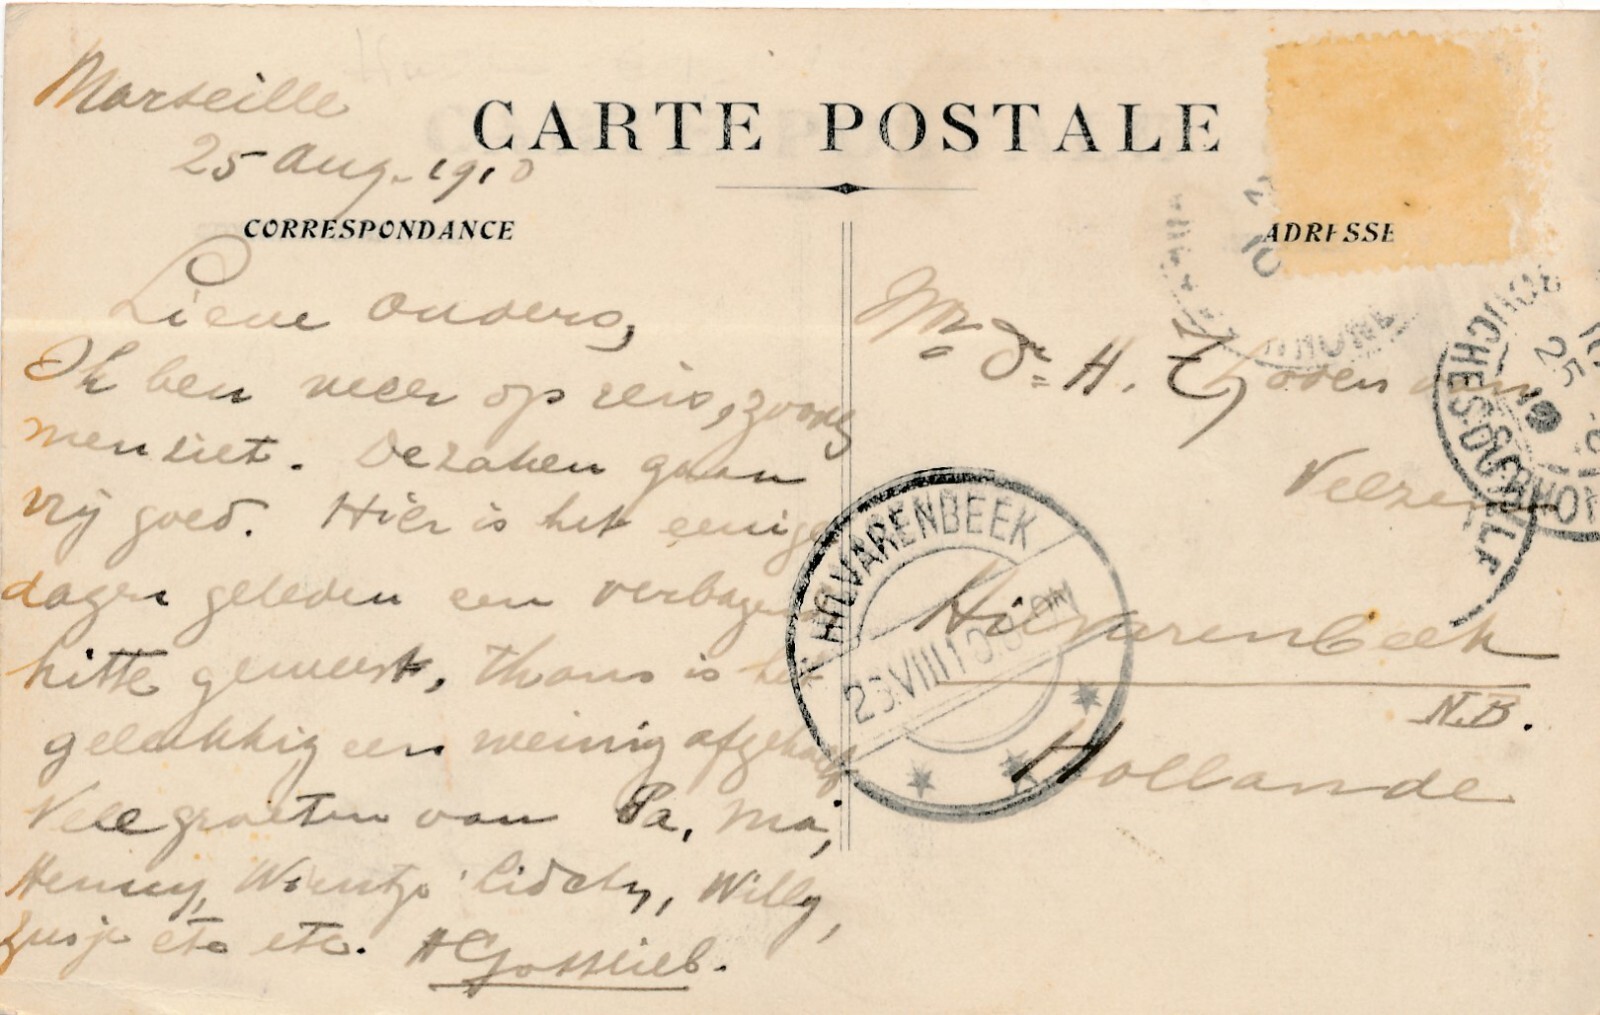 CARTE POSTALE
Marseille
25 Aug. 1910
CORRESPONDANCE
Lieve Ouders,
Ik ben weer op reis, zooals
men ziet. De zaken gaan
vrij goed. Hier is het eenige
dagen geleden een verbazende
hitte geweest, thans is het
gelukkig een weinig afgekoeld
Veel groeten van Pa, Ma,
Henny, Wientje Lidchy, Willy,
Zusje etc etc. H Gottlieb.
ADRESSE
Mr. Dr. H. van
Velzen
Hilvarenbeek
N.B.
Hollande
HILVARENBEEK
VIII10
BOUCHES-DU-RHONE
25